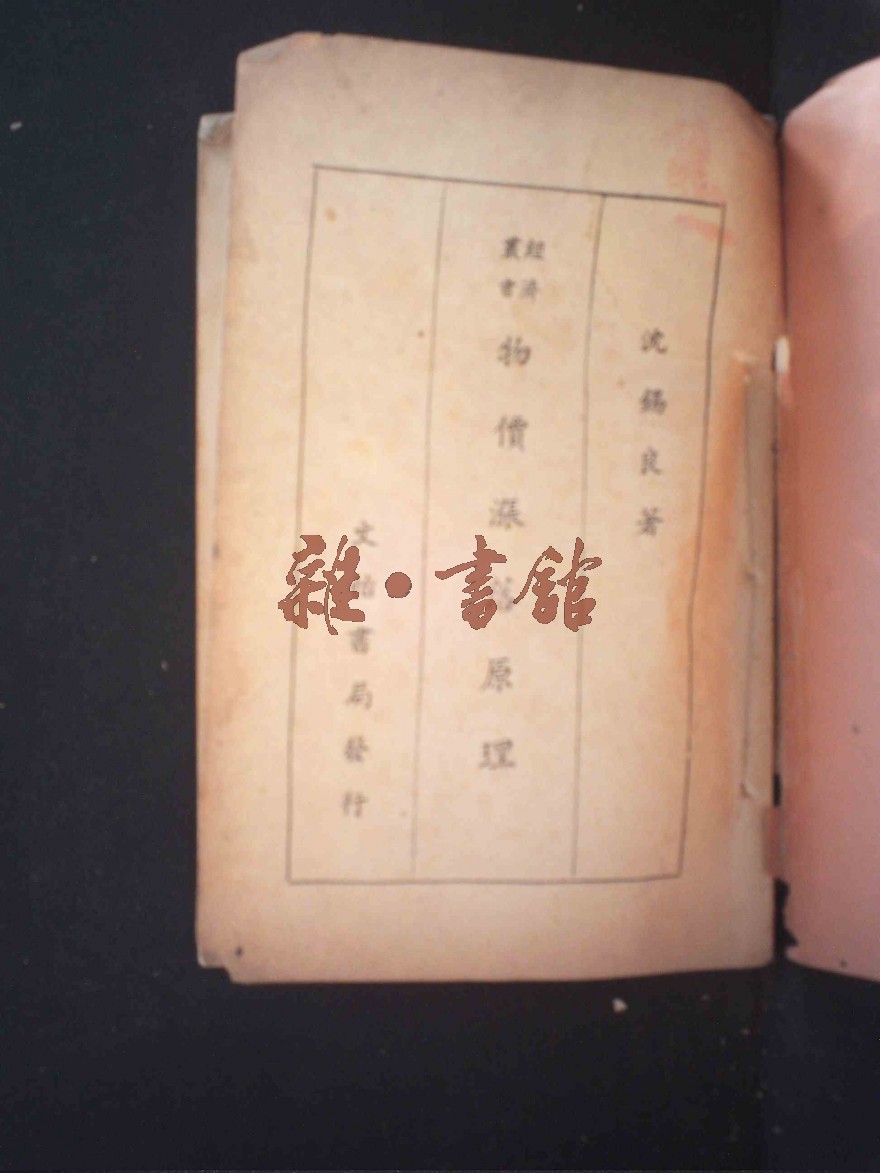 沈錫良著
經濟叢書
物價漲落原理
文怡書局發行
雜·書館